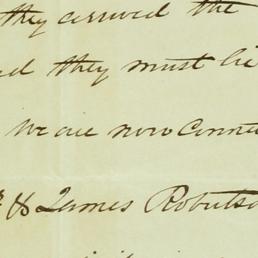 they arrived the
they must lie
We are now
& James Roberts